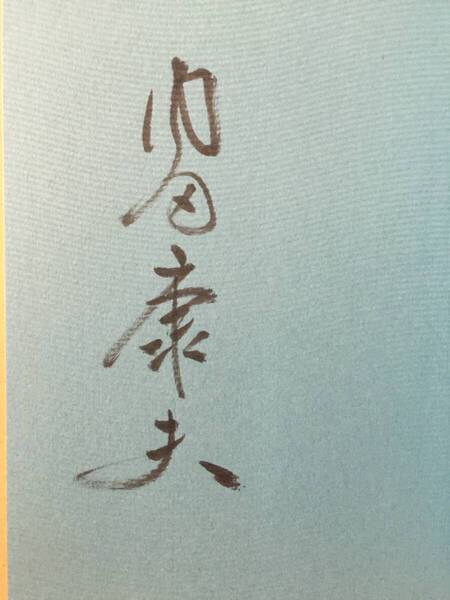 内田康夫